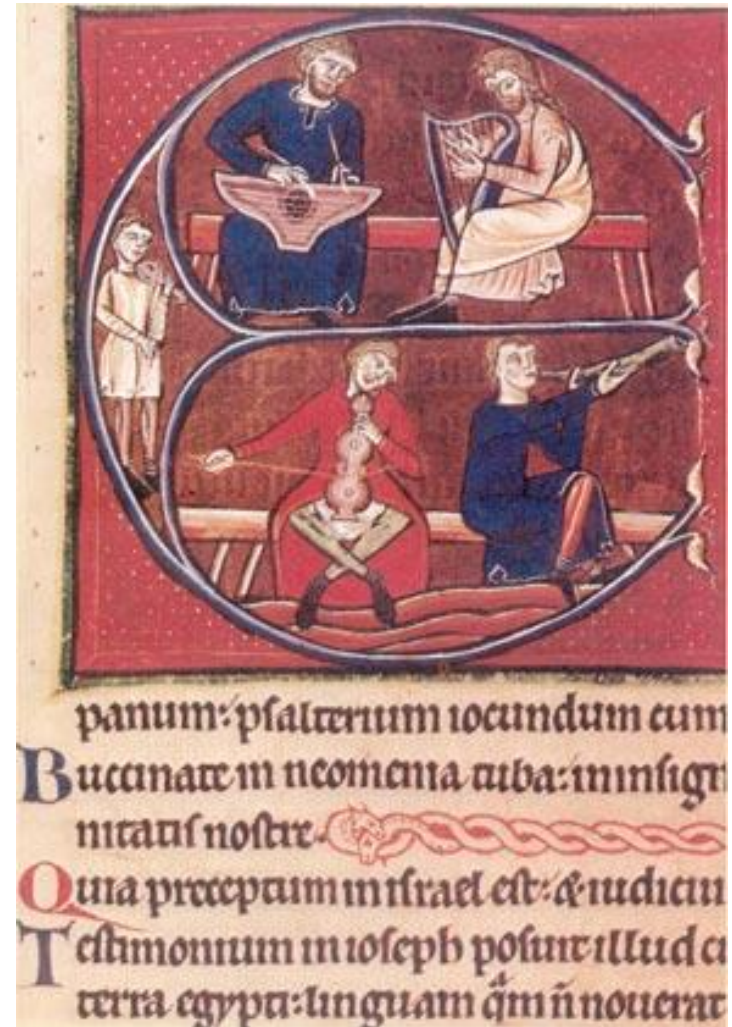 E
panum: psalterium iocundum cum
Buccinate in neomenia tuba: in insign
nitatis nostre.
Quia preceptum in israel est: & iudiciu
Testimonium in ioseph posuit illud cu
terra egypti: linguam q̃m ñ nouerat